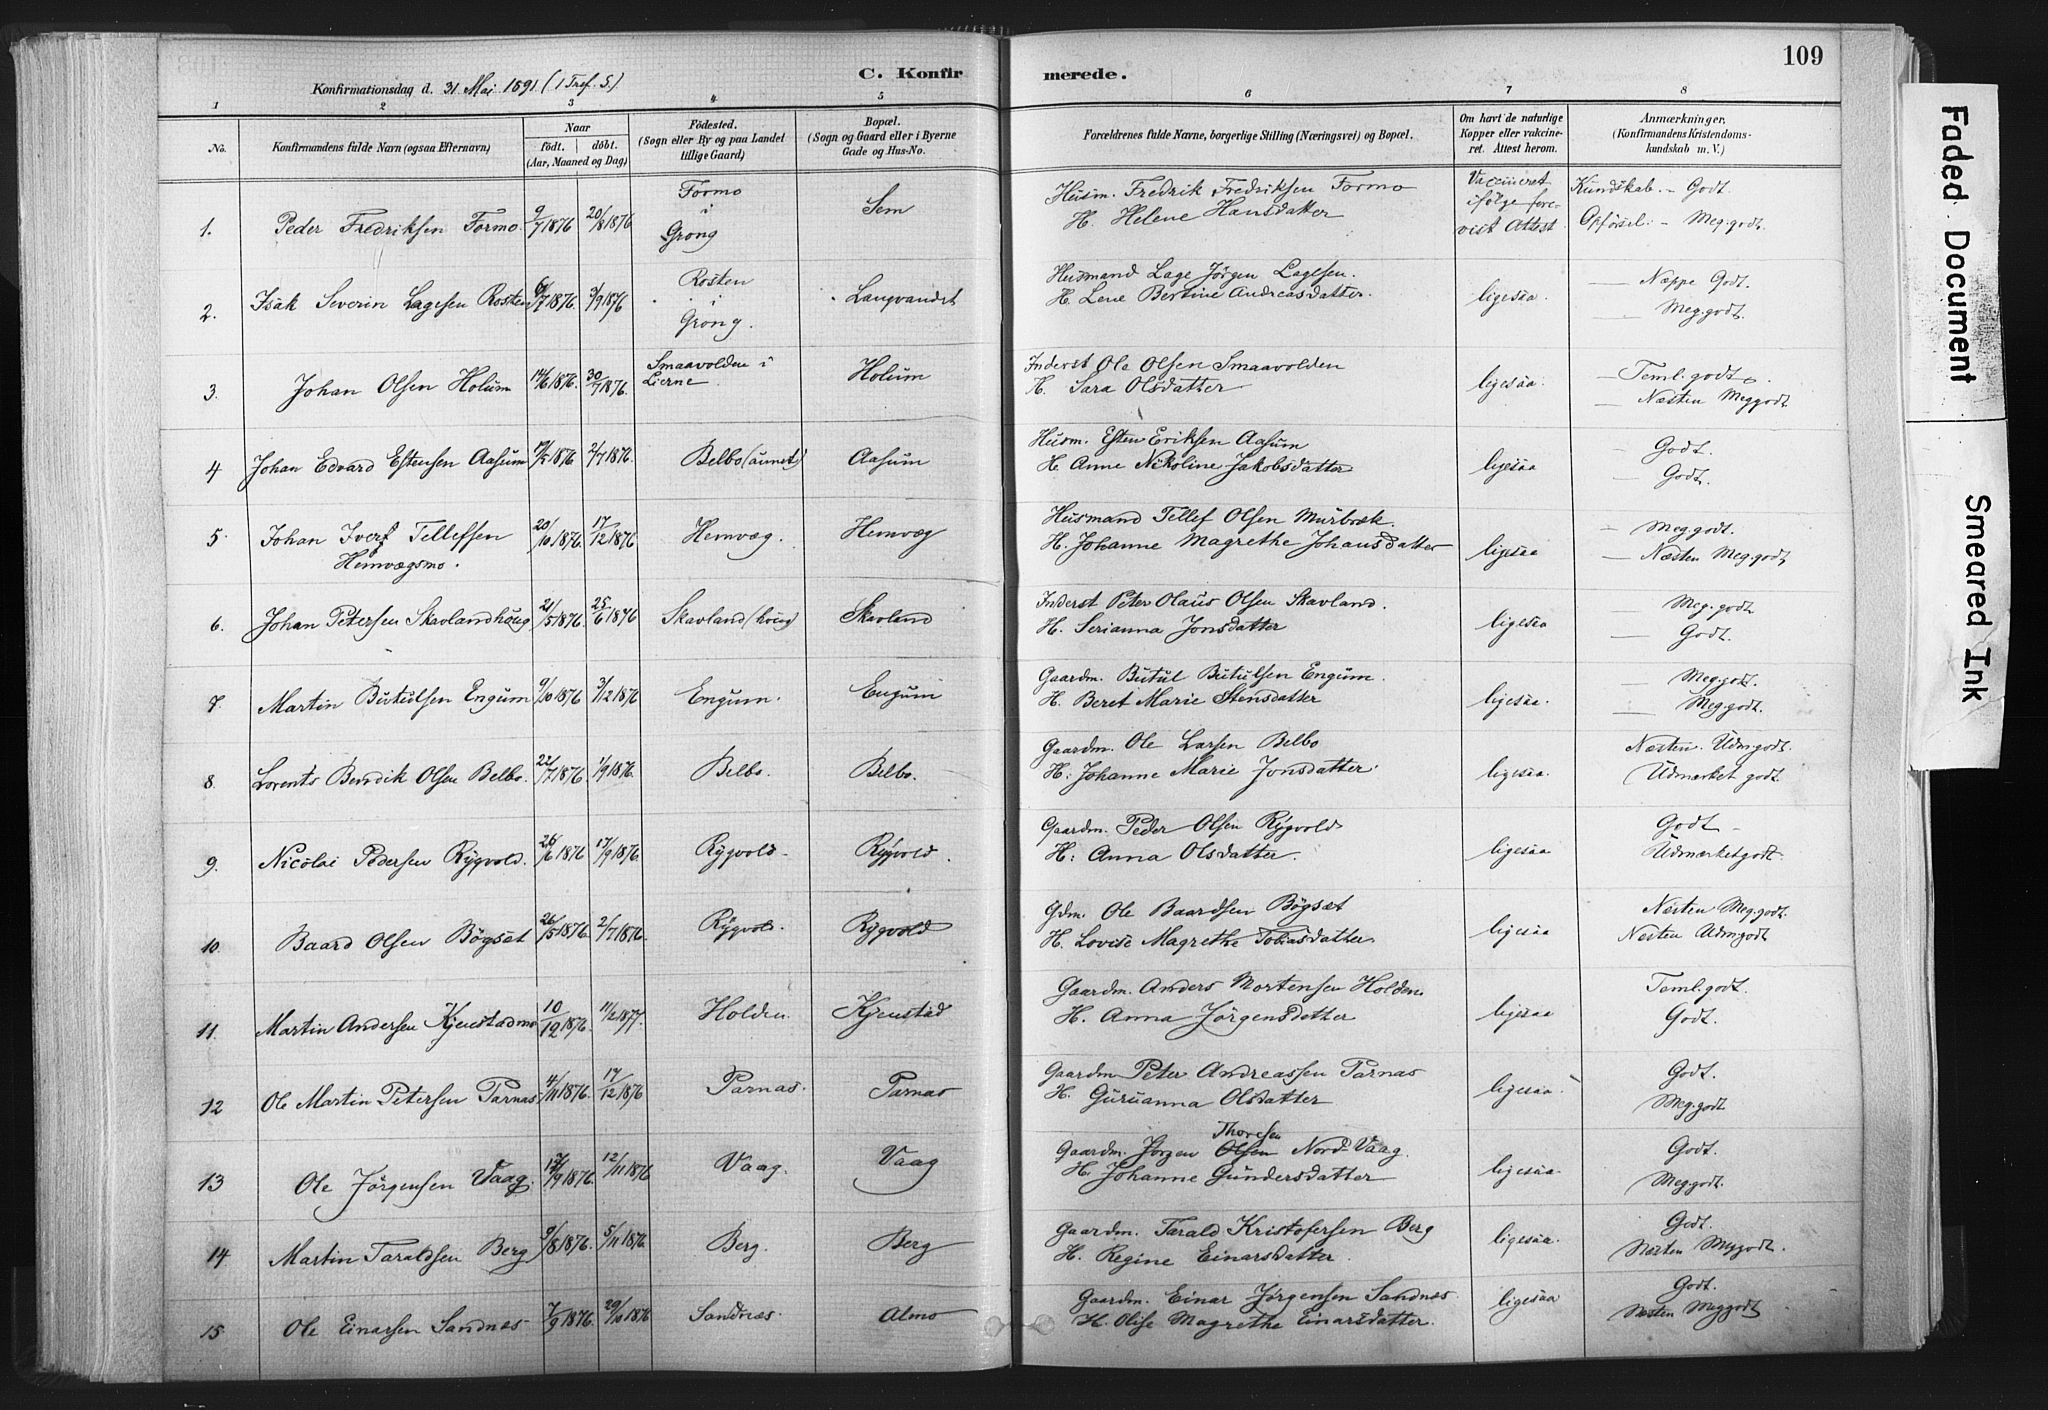 109
C. Konfirmerede.
Konfirmationsdag d. 31 Mai 1891 (1 Tref. S.)
1 2 3 4 5 6 7 8
No.
Konfirmandens fulde Navn (ogsaa Efternavn)
Naar
født. døbt.
(Aar, Maaned og Dag)
Födested.
(Sogn eller By og paa Landet
tillige Gaard)
Bopæl.
(Sogn og Gaard eller i Byerne
Gade og Hus-No.
Forældrenes fulde Navne, borgerlige Stilling (Næringsvei) og Bopæl.
Om havt de naturlige
Kopper eller vakcine-
ret. Attest herom.
Anmærkninger.
(Konfirmandens Kristendoms-
kundskab m. V.)
1. Peder Fredriksen Formo 9/7 1876 20/8 1876 Formo i Grong Sem
Husm. Fredrik Fredriksen Formo
H. Helene Hansdatter
Vaccineret ifølge fore- vist Attest
Kundskab. - Godt.
Opførsel. - Meg. godt.
2. Isak Severin Lagesen Rosten 6/7 1876. 3/9 1876 Rosten i Grong. Langvandet
Husmand Lage Jörgen Lagesen.
H. Lene Bertine Andreasdatter.
ligesaa.
Næppe Godt.
Meg. godt.
3. Johan Olsen Holum 14/6 1876. 30/7 1876. Smaavolden i Lierne Holum
Inderst Ole Olsen Smaavolden
H. Sara Olsdatter
ligesaa.
Teml. godt.
Næsten Meg godt
4 Johan Edvard Estensen Aasum 1876 2/7 1876. Belbo (aunet) Aasum
Husm. Esten Eriksen Aasum
H. Anne Nikoline Jakobsdatter
ligesaa
Godt.
Godt.
5. Johan Ivert Tellefsen
Hemvægsmo. 20/10 1876. 17/12 1876 Hemvæg. Hemvæg
Husmand Tellef Olsen Murbræk.
H. Johanne Magrethe Johansdatter
ligesaa
Meg. godt.
Næsten Meg. godt
6. Johan Petersen Skavlandhaug 21/5 1876. 25/6 1876 Skavland (haug) Skavland
Inderst Peter Olaus Olsen Skavland.
H. Serianna Jonsdatter
ligesaa
Meg. godt
Godt.
7. Martin Butulsen Engum 9/10 1876 3/12 1876 Engum. Engum
Gaardm. Butul Butulsen Engum.
H. Beret Marie Stensdatter
ligesaa.
Meg. godt.
Meg. godt.
8. Lorents Bendik Olsen Belbo. 22/7 1876 1/9 1876. Belbo. Belbo.
Gaardm. Ole Larsen Belbo
H. Johanne Marie Jonsdatter.
ligesaa.
Næsten Udm. godt.
Udmærket godt.
9. Nicolai Pedersen Rygvold. 26/6 1876 17/9 1876. Rygvold. Rygvold.
Gaardm. Peder Olsen Rygvold
H: Anna Olsdatter.
ligesaa
Godt
Udmærket godt.
10. Baard Olsen Bögset 26/5 1876. 2/7 1876. Rygvold. Rygvold
Gdm. Ole Baardsen Bögset
H. Lovise Magrethe Tobiasdatter
ligesaa
Næsten Meg. godt.
Næsten Udm godt
11. Martin Andersen Kjenstadmo 10/12 1876. 11/2 1877. Holden Kjenstad
Gaardm. Anders Mortensen Holden
H. Anna Jörgensdatter
ligesaa
Teml. godt.
Godt.
12 Ole Martin Petersen Parnas 4/11 1876. 17/12 1876 Parnas. Parnas
Gaardm Peter Andreassen Parnas
H. Guruanna Olsdatter
ligesaa.
Godt.
Meg. godt
13 Ole Jörgensen Vaag. 9 1876. 12/11 1876 Vaag. Vaag
Thoresen
Gaardm. Jörgen Olsen Nord-Vaag.
H. Johanne Gundersdatter
ligesaa
Godt.
Meg godt.
14 Martin Taraldsen Berg 9/8 1876. 5/11 1876. Berg. Berg
Gaardm. Tarald Kristofersen Berg
H. Regine Einarsdatter.
ligesaa.
Godt.
Næsten Meg godt.
15 Ole Einarsen Sandnæs 7/9 1876. 29/10 1876 Sandnæs. Almo
Gaardm. Einar Jörgensen Sandnæs.
H. Olise Magrethe Einarsdatter.
ligesaa
Godt.
Næsten Meg godt
Faded Document
Smeared Ink